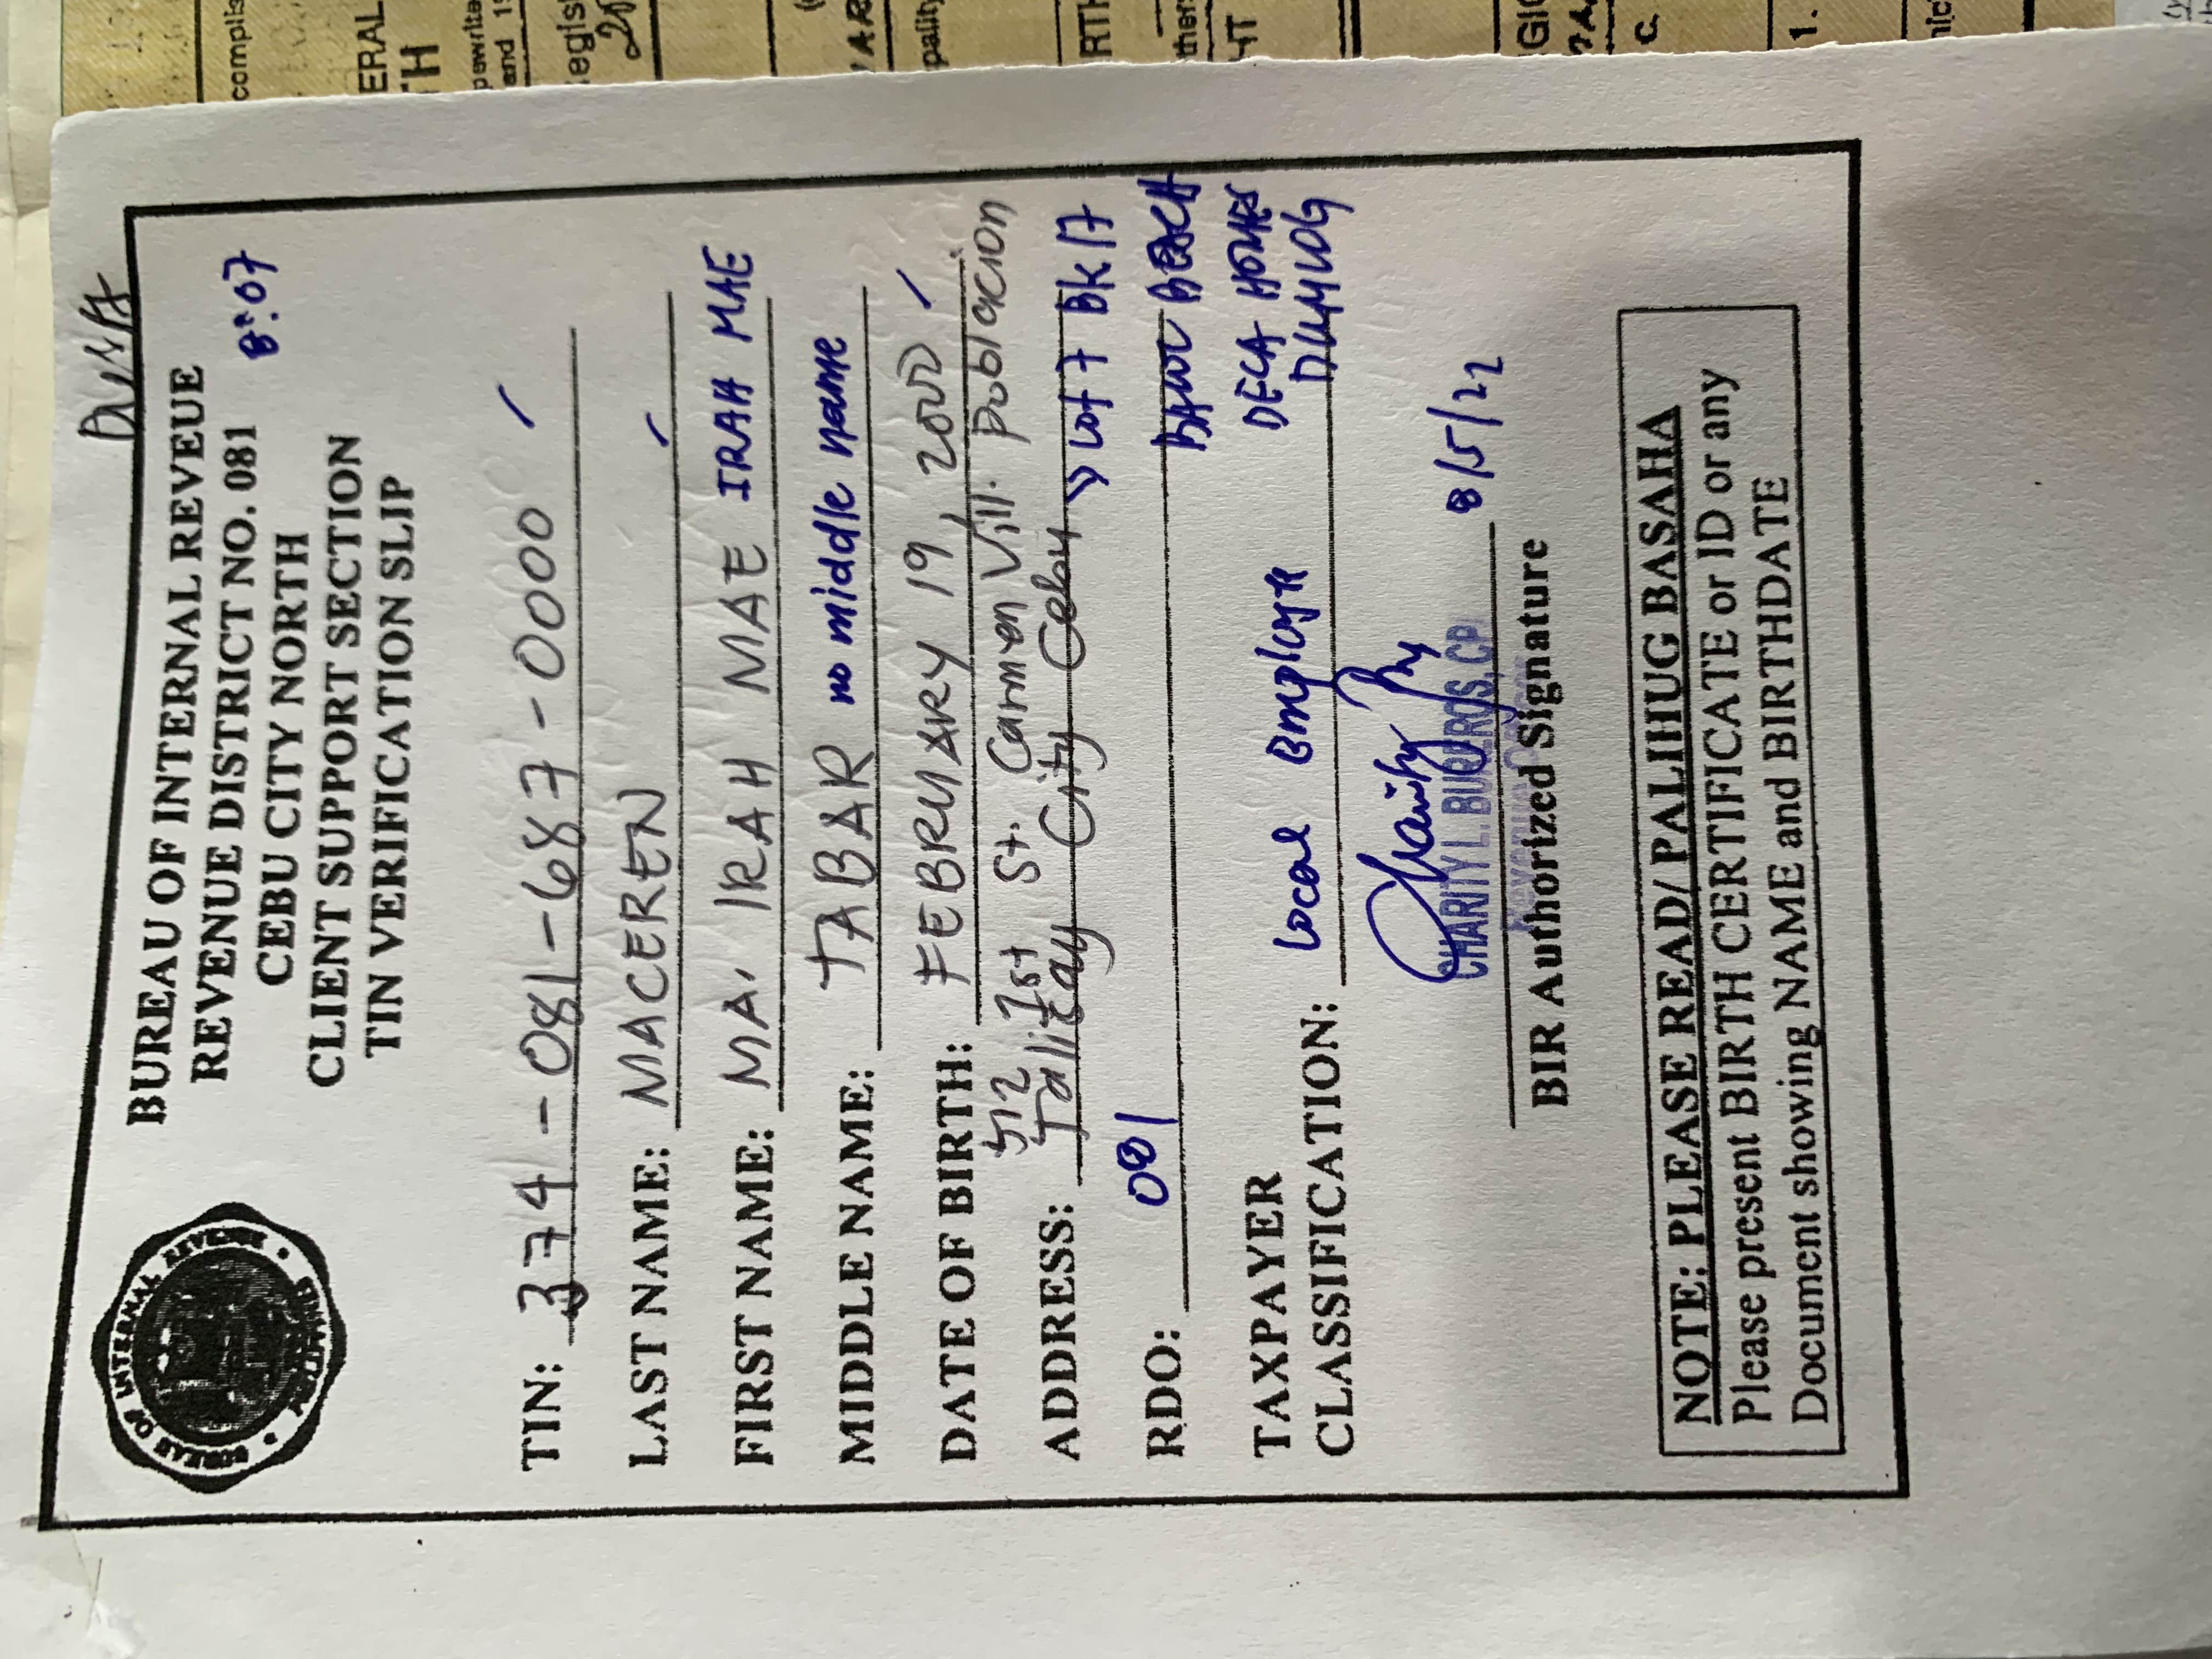 DUNA
BUREAU OF INTERNAL REVEUE
REVENUE DISTRICT NO. 081
8:07
CEBU CITY NORTH
CLIENT SUPPORT SECTION
TIN VERIFICATION SLIP
BUREAU OF INTERNAL REVENUE
TIN: 374-081-687-0000
LAST NAME: MACEREN
FIRST NAME: MA. IRAH MAE IRAH MAE
MIDDLE NAME: TABAR no middle name
DATE OF BIRTH: FEBRUARY 19, 2000
512 1st St. Carmen Vill. Poblacion
ADDRESS: Talisay City Cebu Lot 7 Bk 17
RDO: 081 BEACH
DECA HOMES
DUMLOG
TAXPAYER
CLASSIFICATION: Local Employee
CHARITY L. BURGOS, CP
8/5/22
BIR Authorized Signature
NOTE: PLEASE READ/ PALIHUG BASAHA
Please present BIRTH CERTIFICATE or ID or any
Document showing NAME and BIRTHDATE
complis
ERAL
TH
pewrite
and 1
egist
20
pality
RTH
ther
NT
GIC
C.
1.
nic